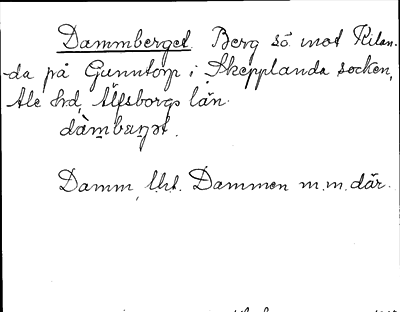 Dammberget. Berg sö. mot Kilan-
da på Gunntorp i Skepplanda socken,
Ale hd, Älfsborgs län.
dàmbæṛət.
Damm, lht. Dammen m.m. där.